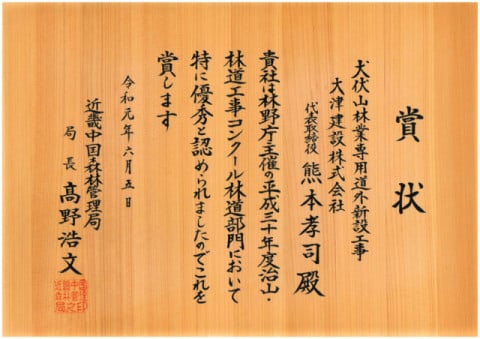 賞状
犬伏山林業専用道外新設工事
大津建設株式会社
代表取締役 熊本孝司殿
貴社は林野庁主催の平成三十年度治山・
林道工事コンクール林道部門において
特に優秀と認められましたのでこれを
賞します
令和元年六月五日
近畿中国森林管理局
局長 高野浩文